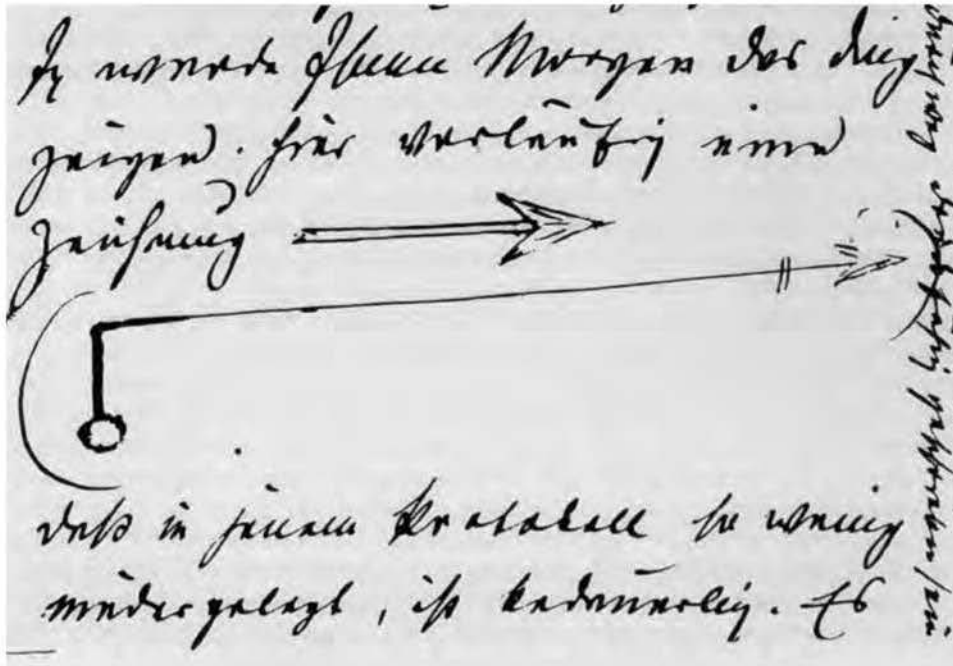 Ich werde Ihnen Morgen das ding
zeigen. hier vorläufig eine
zeichnung
daß in jenem Protokoll so wenig
niedergelegt, ist bedauerlich. Es